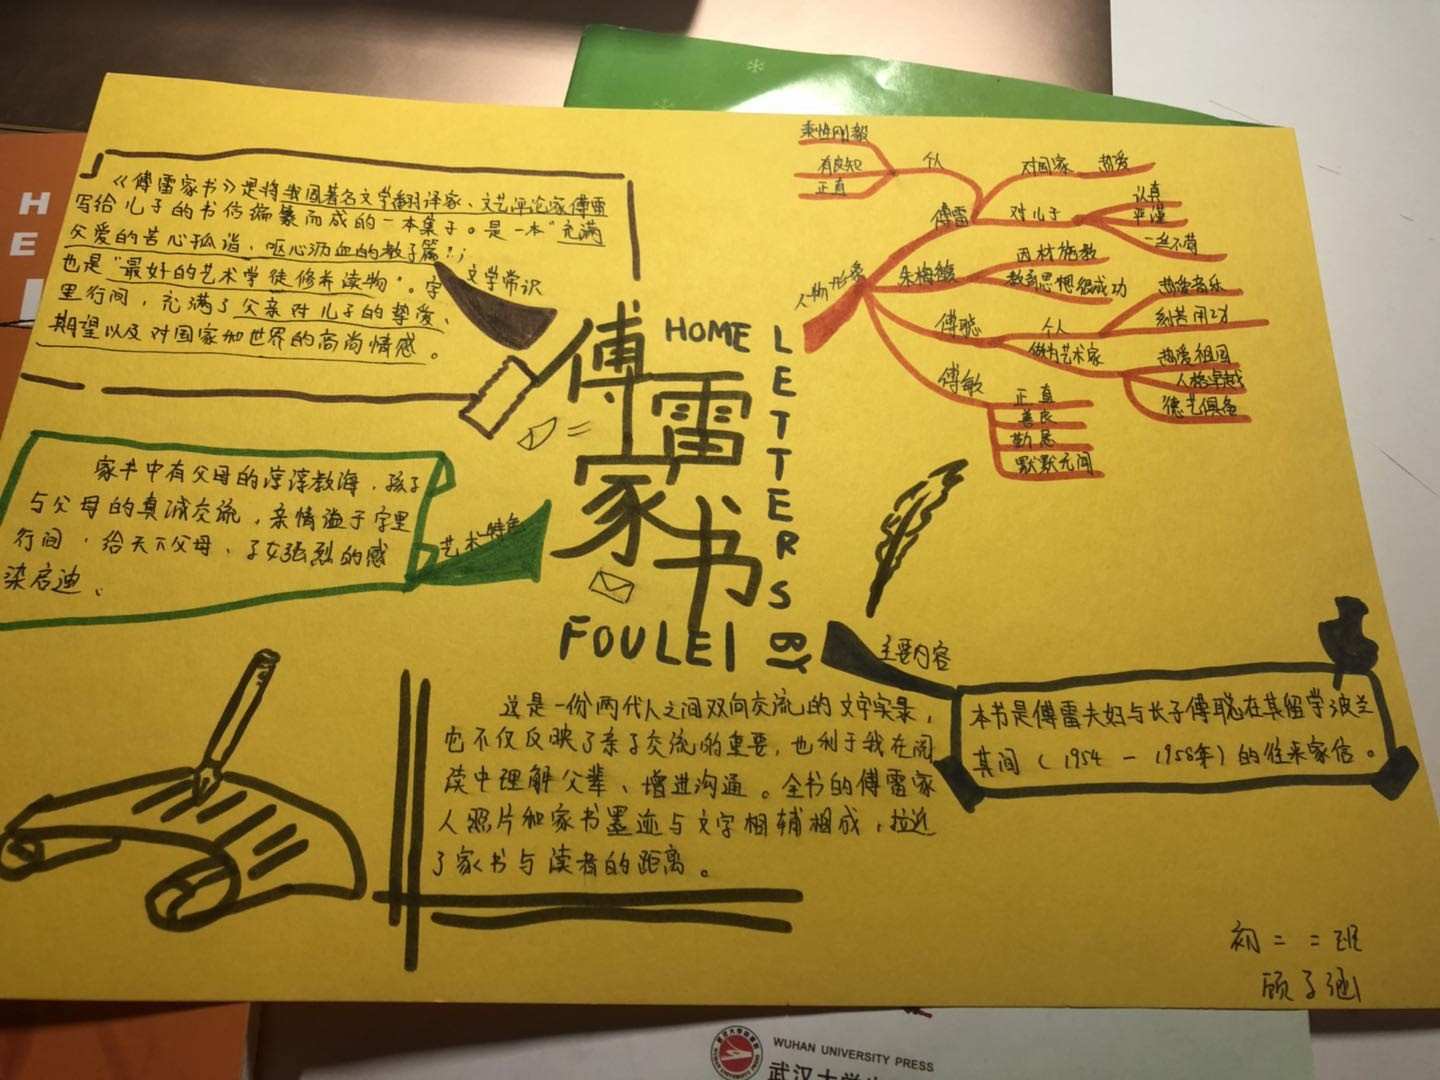 《傅雷家书》是将我国著名文学翻译家、文艺评论家傅雷
写给儿子的书信编纂而成的一本集子。是一本“充满
父爱的苦心孤诣、呕心沥血的教子篇”；
也是“最好的艺术学徒修养读物”。字
里行间，充满了父亲对儿子的挚爱、
期望以及对国家和世界的高尚情感。
文学常识
家书中有父母的谆谆教诲，孩子
与父母的真诚交流，亲情溢于字里
行间，给天下父母、子女强烈的感
染启迪、
艺术特色
傅雷
家书
HOME
LETTERS BY
FOULEI
人物形象
傅雷
个人
秉性刚毅
有良知
正直
对国家 热爱
对儿子
认真
严谨
一丝不苟
朱梅馥
因材施教
教育思想很成功
傅聪
个人
热爱音乐
刻苦用功
做为艺术家
热爱祖国
人格卓越
德艺俱备
傅敏
正直
善良
勤恳
默默无闻
主要内容
本书是傅雷夫妇与长子傅聪在其留学波兰
其间（1954－1958年）的往来家信。
这是一份两代人之间双向交流的文字实录，
它不仅反映了亲子交流的重要，也利于我在阅
读中理解父辈、增进沟通。全书的傅雷家
人照片和家书墨迹与文字相辅相成，拉近
了家书与读者的距离。
初二二班
顾子涵
H
E
WUHAN UNIVERSITY PRESS
武汉大学